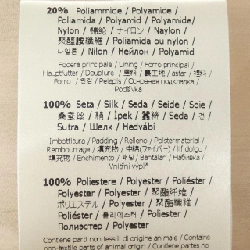 20% Poliammide / Polyamide /
Poliamida / Polyamid / Polyamide /
Nylon / 錦綸 / ナイロン / Naylon /
聚醯胺纖維 / Poliamida ou nylon /
나일론 / Nilon / Нейлон / Polyamid
Fodera principale / Lining / Forro principal /
Hauptfutter / Doublure / 里料 / 裏地 / astar /
Podšívka
100% Seta / Silk / Seda / Seide / Soie /
桑蚕丝 / 絹 / İpek / 蠶絲 / Seda / 견 /
Sutra / Шелк / Hedvábí
Imbottitura / Padding / Relleno / Polstermaterial /
Rembourrage / 填充物 / 中綿 /
填充物 / Enchimento / 충전재 /
100% Poliestere / Polyester / Poliéster /
Polyester / Polyester / 聚酯纤维 /
ポリエステル / Polyester / 聚酯纖維 /
Poliéster / 폴리에스터 / Poliester /
Полиэстер / Polyester
Contiene parti non tessili di origine animale / Contains
non-textile parts of animal origin / Contiene partes no